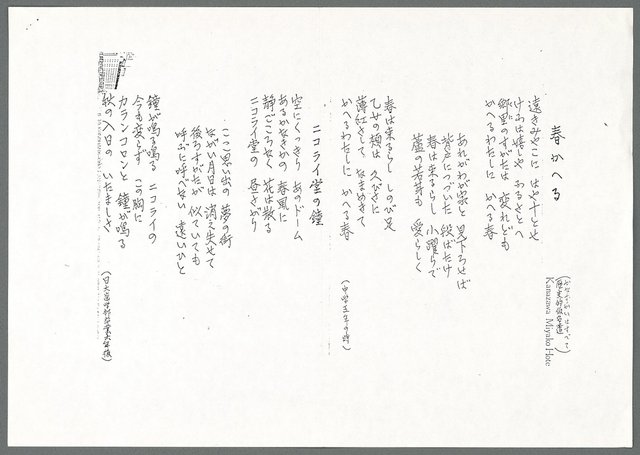 春かへる
(かなづかいはすべて
歴史的仮名遣)
Kanazawa Miyako Hote
遠きみやこに はや千とせ
けふは嬉しや ふるさとへ
郷里のすがたは 変れども
かへるわたしに かへる春
あれがわが家と 見下ろせば
背戸につづいた 段ばたけ
春は来るらし 小躍らで
蘆の若芽も 愛らしく
春は来るらし しのび足
乙女の頬は 久びさに
薄紅さして なまめきて
かへるわたしに かへる春
(中学五年の時)
ニコライ堂の鐘
空にくっきら あのドーム
あるかなきかの 春風に
静ごころなく 花は散る
ニコライ堂の 昼さがり
ここ思い出の 夢の街
ながい月日は 消え失せて
後ろすがたが 似ていても
呼ぶに呼べない 遠いひと
鐘が鳴る鳴る ニコライの
今も変らず この胸に
カランコロンと 鐘が鳴る
秋の入日の いたましさ